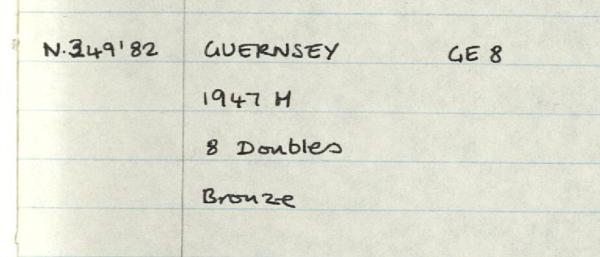 N.349'82 GUERNSEY GE 8
1947 H
8 Doubles
Bronze